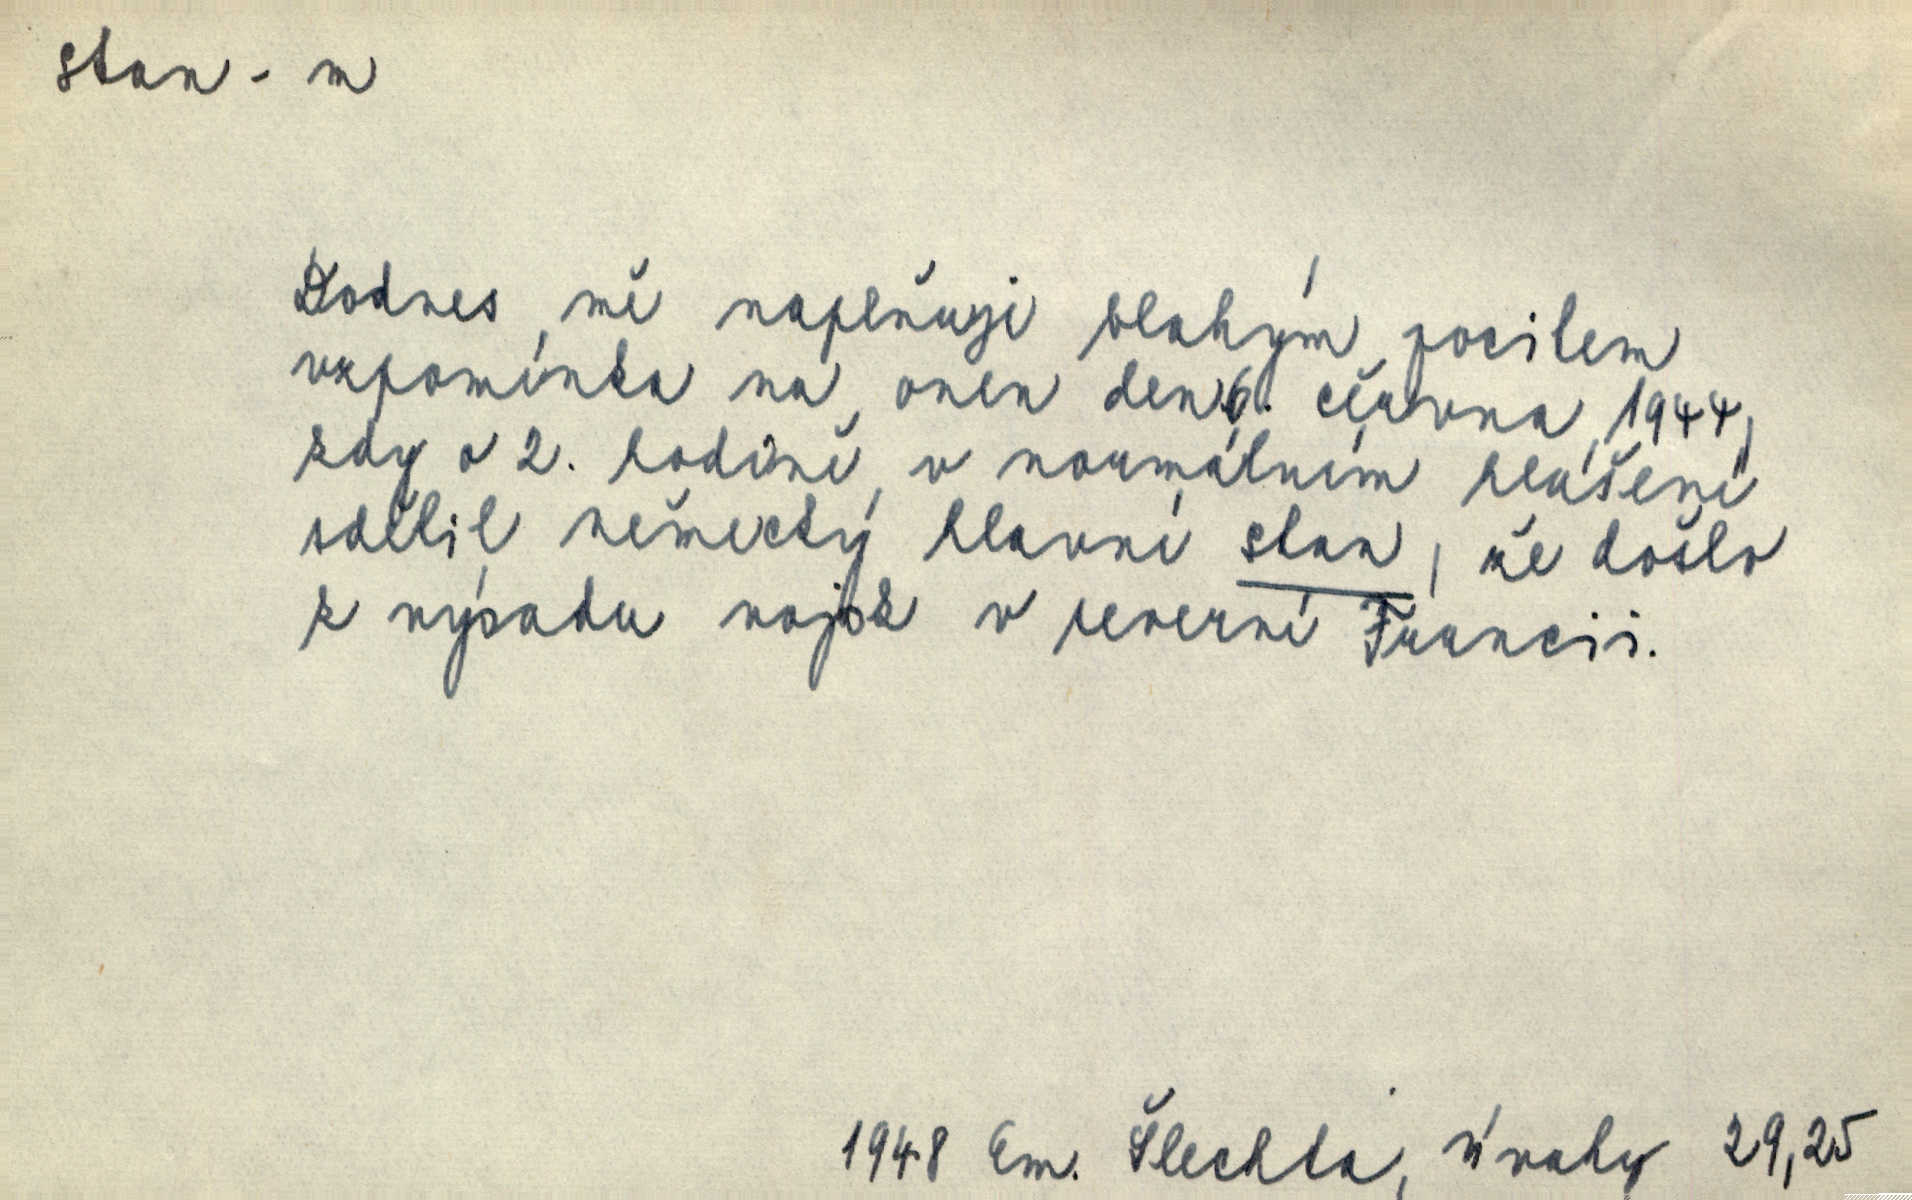 stan - m
Dodnes mě naplňuje blahým pocitem
vzpomínka na onen den 6. června 1944,
kdy o 2. hodině v normálním hlášení
sdělil německý hlavní stan, že došlo
k výsadu vojsk v severní Francii.
1948 Em. Šlechta, Úvahy 29,25